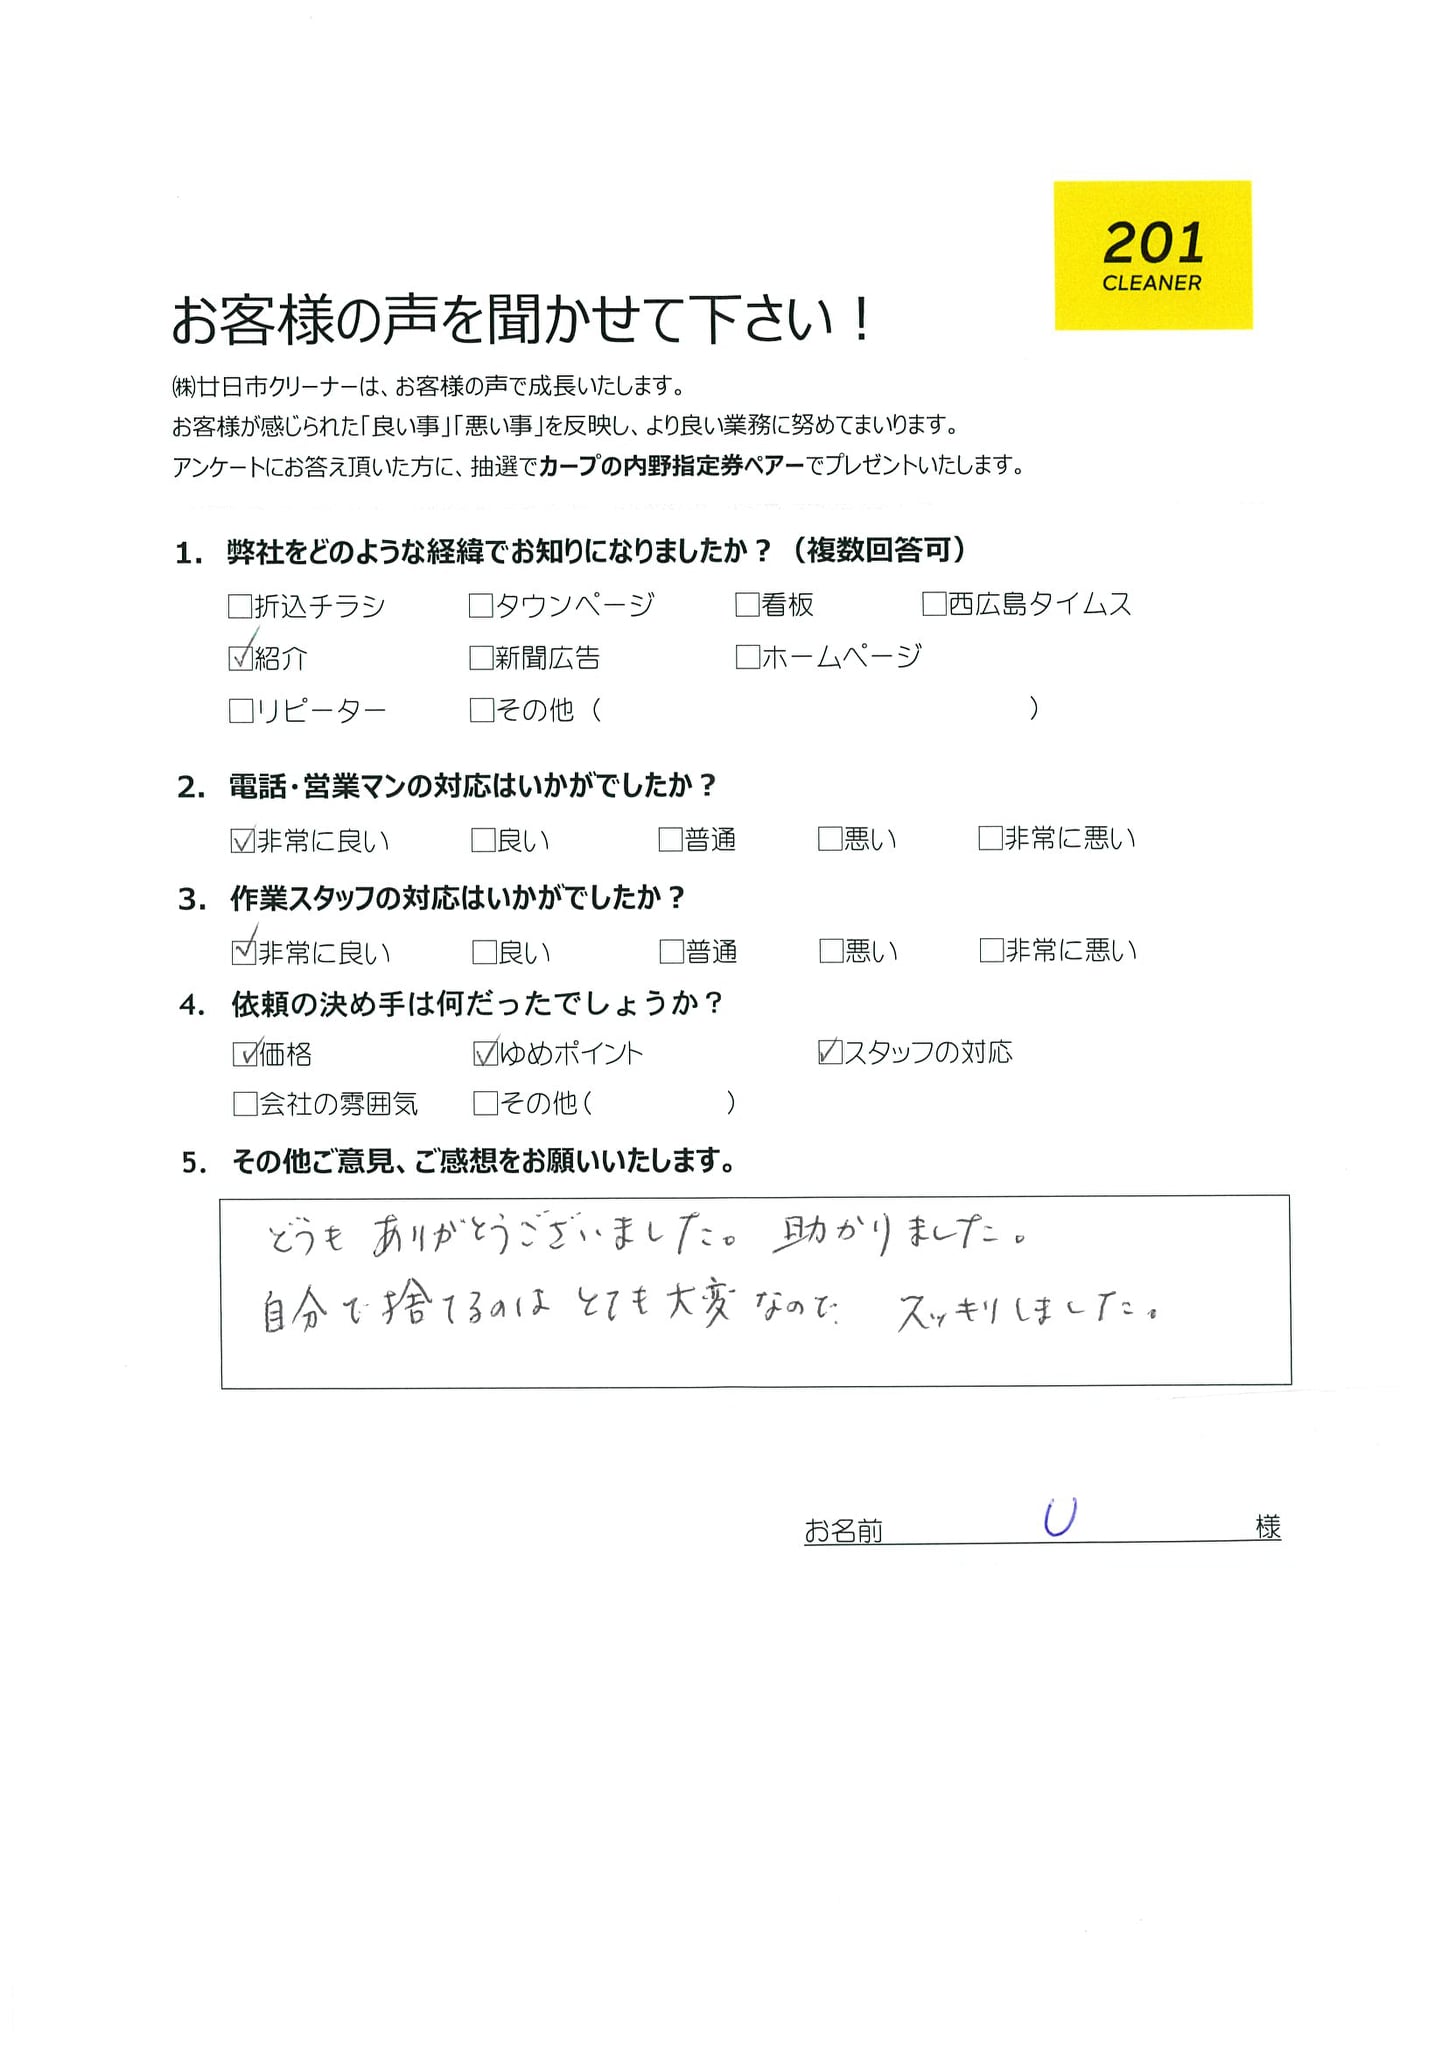 201
CLEANER
お客様の声を聞かせて下さい！
㈱廿日市クリーナーは、お客様の声で成長いたします。
お客様が感じられた「良い事」「悪い事」を反映し、より良い業務に努めてまいります。
アンケートにお答え頂いた方に、抽選でカープの内野指定券ペアーでプレゼントいたします。
1. 弊社をどのような経緯でお知りになりましたか？（複数回答可）
□折込チラシ □タウンページ □看板 □西広島タイムス
☑紹介 □新聞広告 □ホームページ
□リピーター □その他（ ）
2. 電話・営業マンの対応はいかがでしたか？
☑非常に良い □良い □普通 □悪い □非常に悪い
3. 作業スタッフの対応はいかがでしたか？
☑非常に良い □良い □普通 □悪い □非常に悪い
4. 依頼の決め手は何だったでしょうか？
☑価格 ☑ゆめポイント ☑スタッフの対応
□会社の雰囲気 □その他（ ）
5. その他ご意見、ご感想をお願いいたします。
どうも ありがとうございました。 助かりました。
自分で捨てるのは とても大変なので スッキリしました。
お名前 U 様